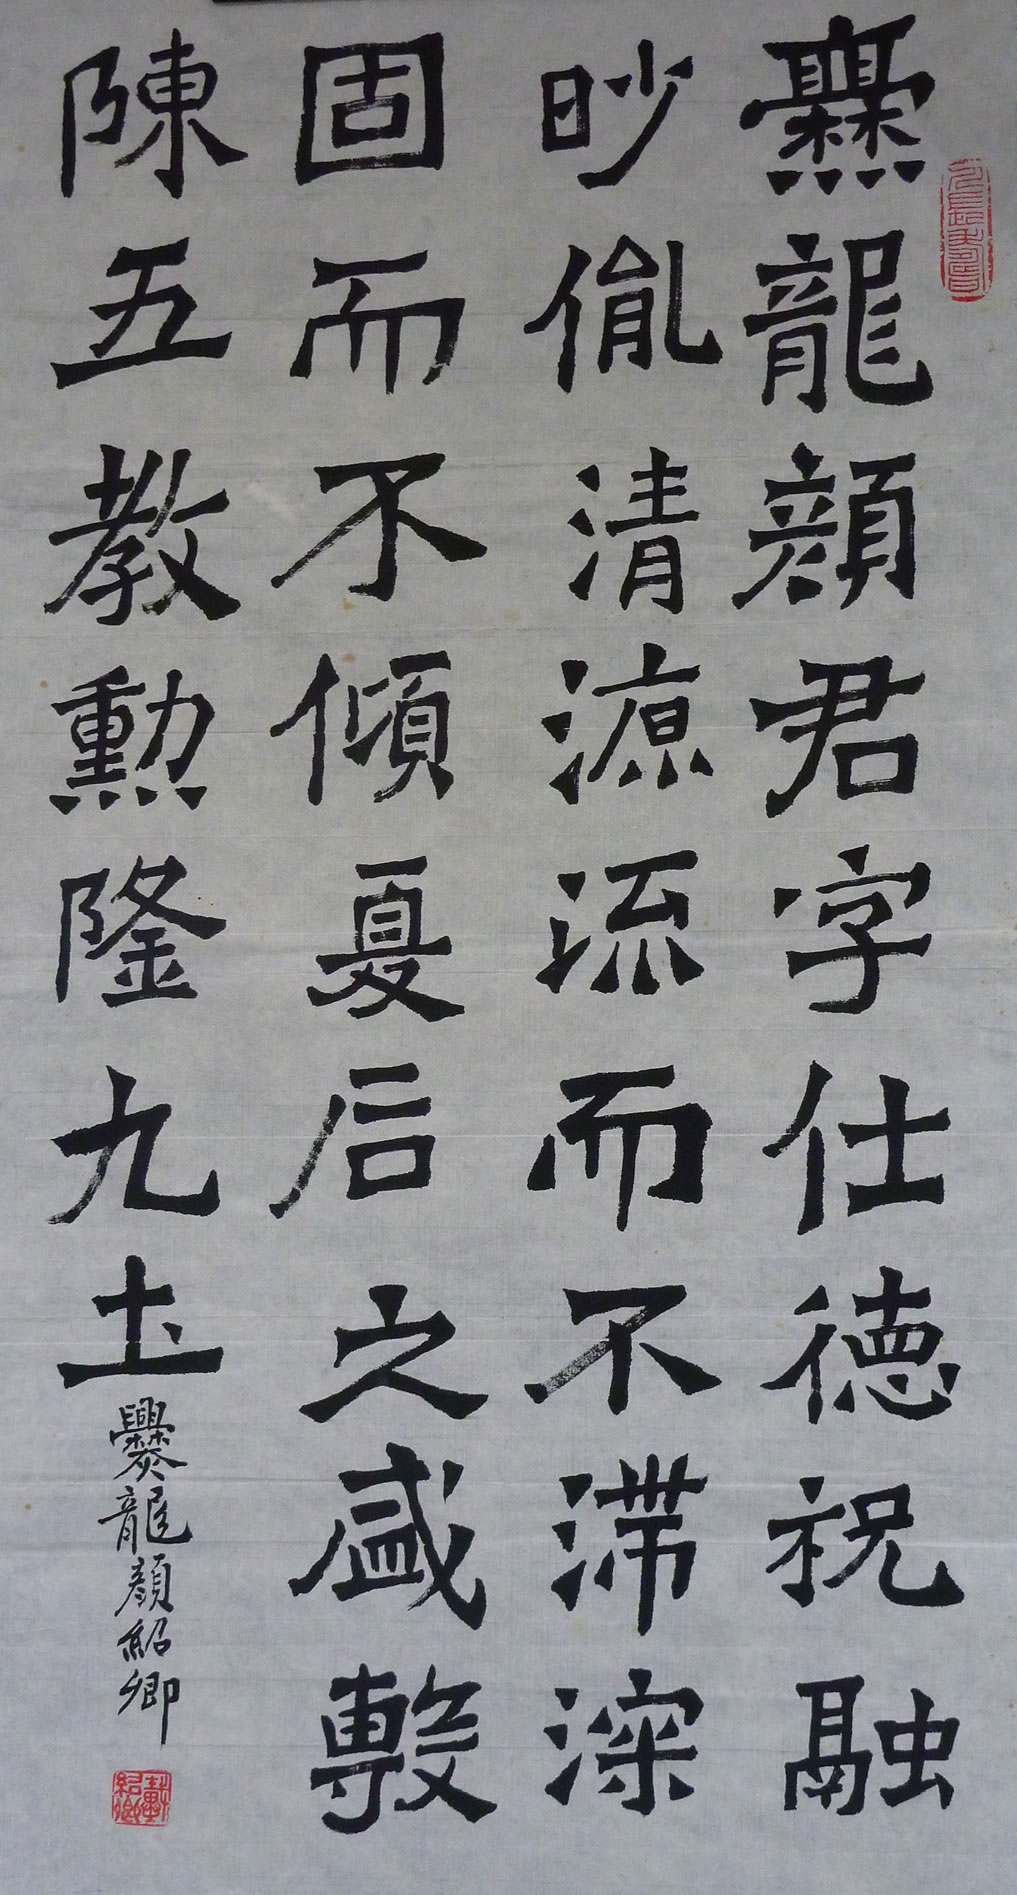 爨龍顏君字仕德祝融
眇胤清源流而不滯深
固而不傾夏后之盛敷
陳五教勳隆九土
爨龍顏紹卿